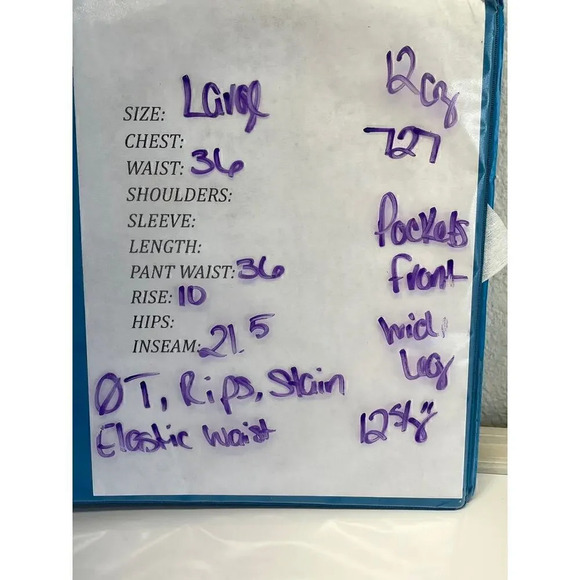 SIZE: Large
CHEST:
WAIST: 36
SHOULDERS:
SLEEVE:
LENGTH:
PANT WAIST: 36
RISE: 10
HIPS:
INSEAM: 21.5
ØT, Rips, Stain
Elastic Waist
12oz
727
Pockets
front
wide
Leg
12 5/8"